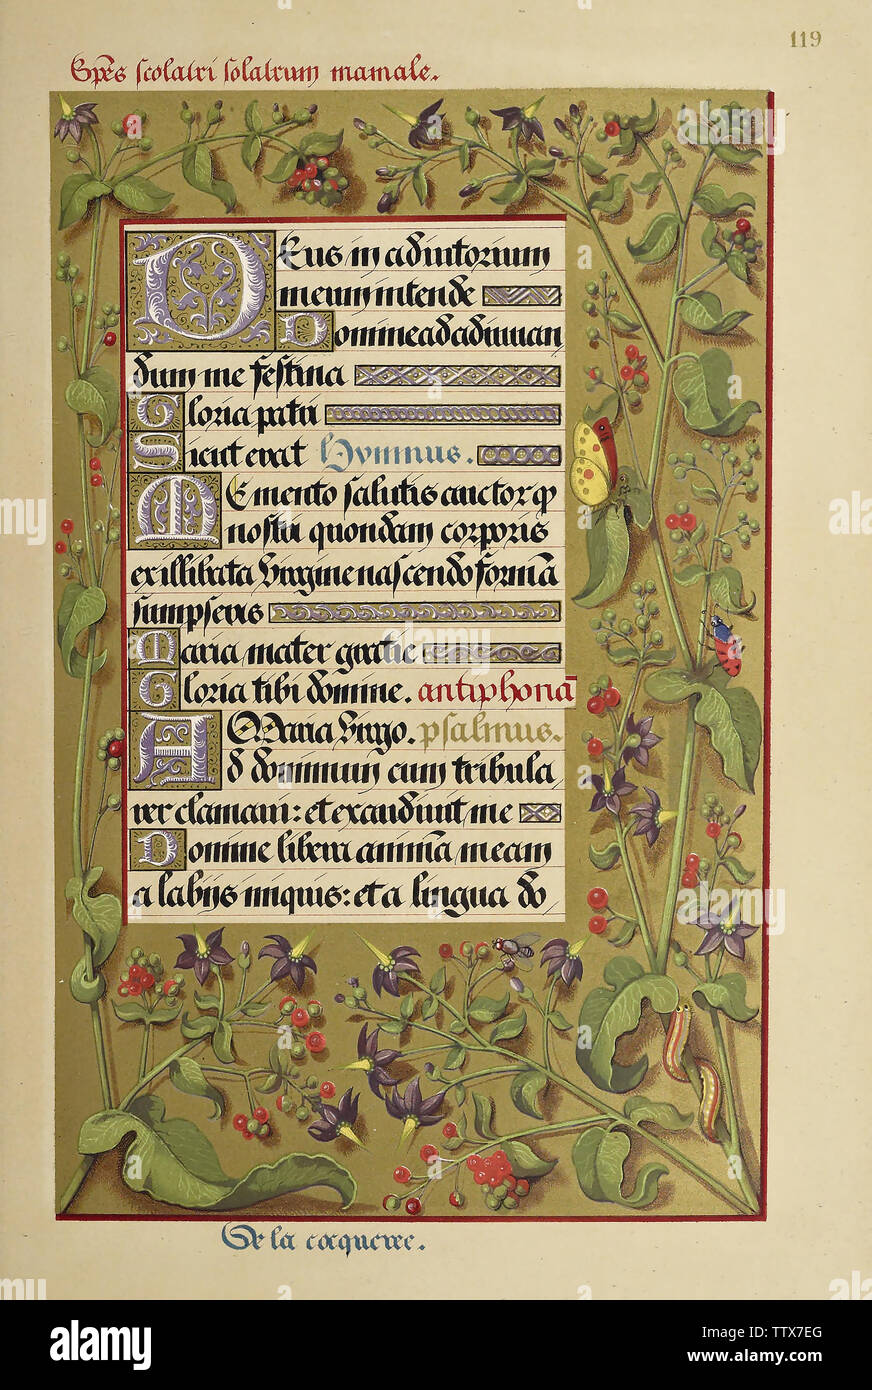 119
Spēs scolatri solatrum mamale.
DEus in adiutorium
meum intende
Domine ad adiuuan
dum me festina
Gloria patri
Sicut erat Hymnus.
MEmento salutis auctor qͥ
nostri quondam corporis
ex illibata virgine nascendo formā
sumpseris
Maria mater gratie
Gloria tibi domine. antiphonā
A Maria virgo. psalmus.
D dominum cum tribula
rer clamaui: et exaudiuit me
Domine libera animā meam
a labijs iniquis: et a lingua do
De la coqueree.
alamy
alamy stock photo
Image ID: TTX7EG
www.alamy.com